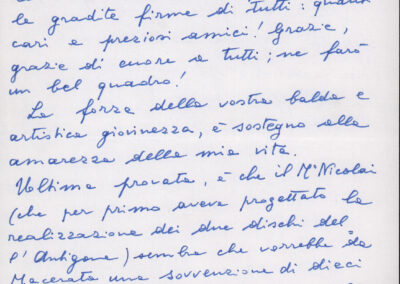 le gradite firme di tutti: quanti
cari e preziosi amici! Grazie,
grazie di cuore a tutti; ne farò
un bel quadro!
La forza della vostra balda e
artistica giovinezza, è sostegno alla
amarezza della mia vita.
Ultima provata, è che il Mº Nicolai
(che per primo aveva progettato la
realizzazione dei due dischi del
l'Antigone) sembra che vorrebbe da
Macerata una sovvenzione di dieci